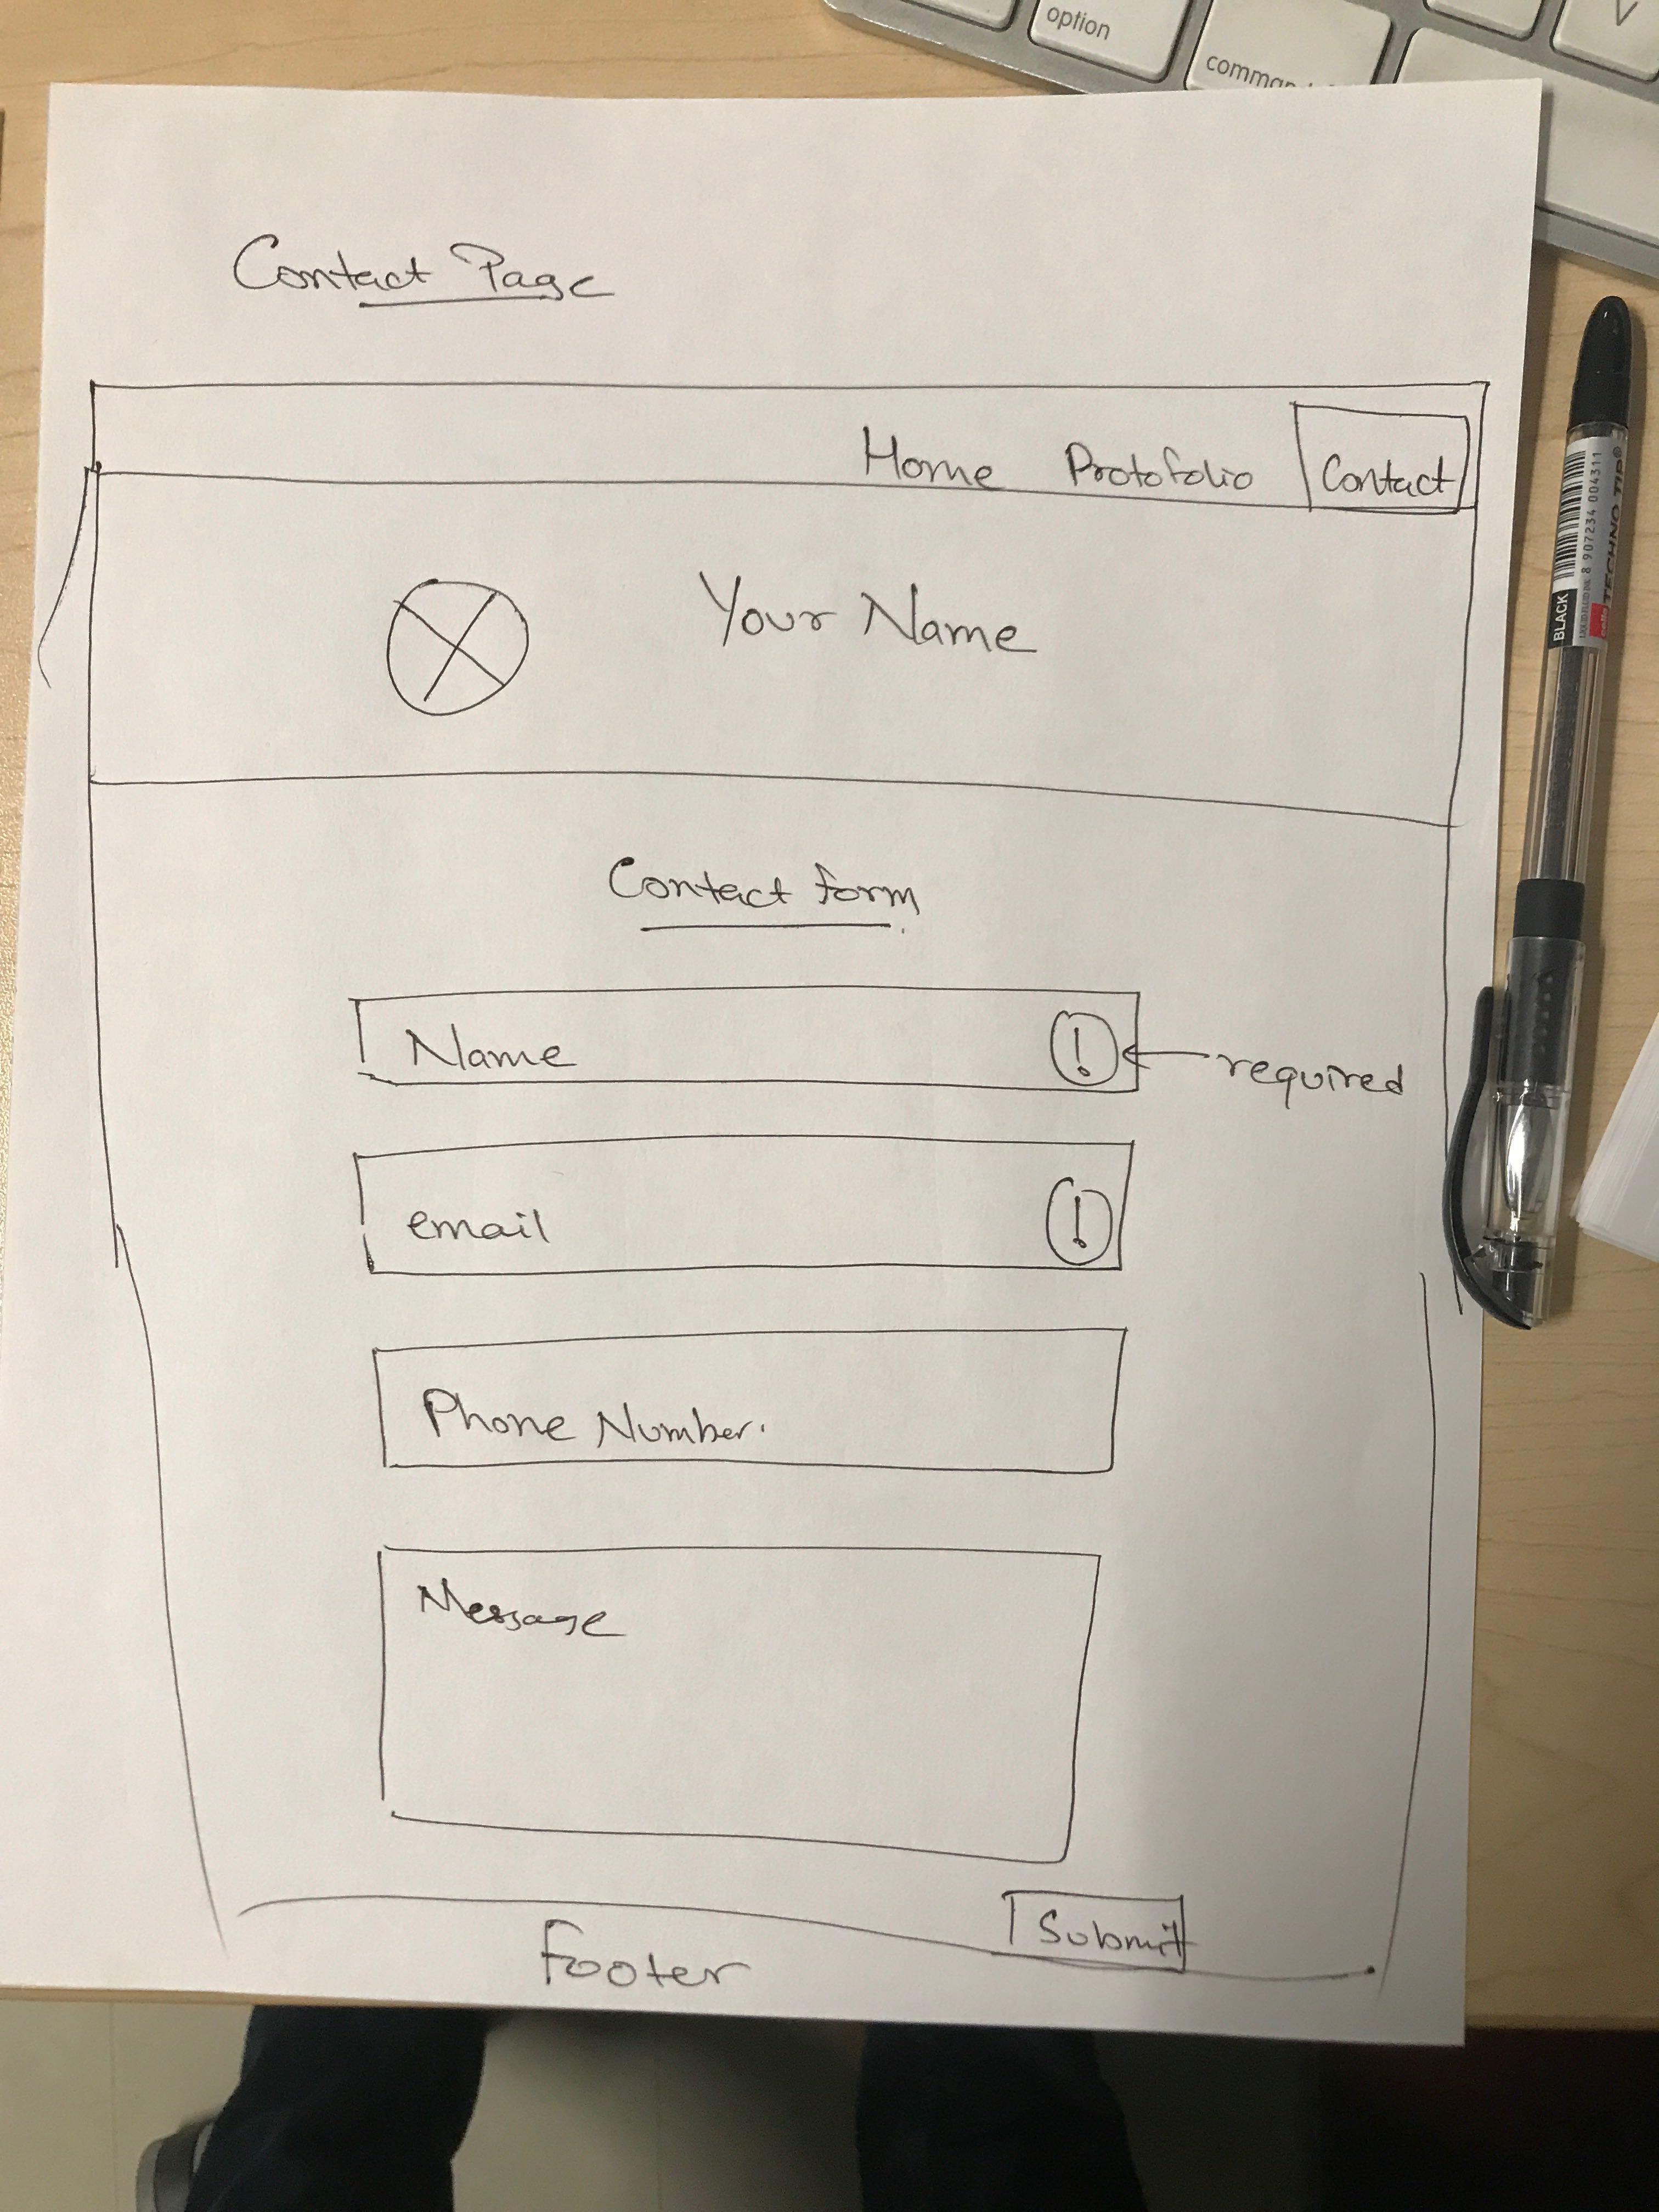 option
command
V
Contact Page
Home Protofolio Contact
Your Name
Contact form
Name ! required
email !
Phone Number.
Message
Submit
Footer
BLACK
8 907234 004311
TECHNO TIP®